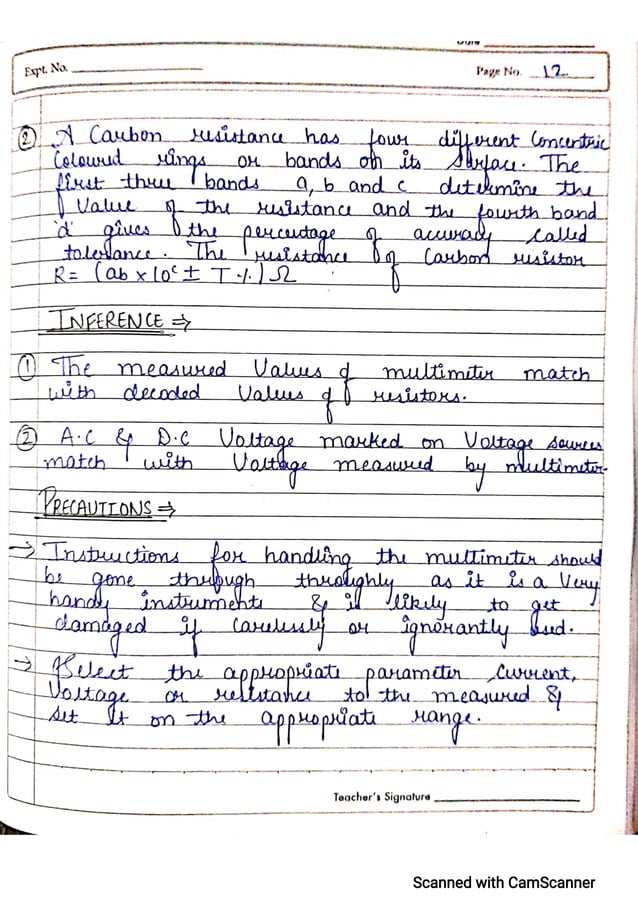 Date
Expt. No.
Page No. 12
② A Carbon resistance has four different Concentric
Coloured rings or bands on its Surface. The
first three bands a, b and c determine the
Value of the resistance and the fourth band
'd' gives the percentage of accuracy called
tolerance. The resistance of Carbon resistor
R = (ab x 10ᶜ ± T %) Ω
INFERENCE ⇒
① The measured Values of multimeter match
with decoded Values of resistors.
② A.C & D.C Voltage marked on Voltage sources
match with Voltage measured by multimeter.
PRECAUTIONS ⇒
→ Instructions for handling the multimeter should
be gone through throughly as it is a Very
handy instrument & is likely to get
damaged if carelessly or ignorantly used.
→ Select the appropriate parameter Current,
Voltage or resistance to the measured &
set it on the appropriate range.
Teacher's Signature
Scanned with CamScanner